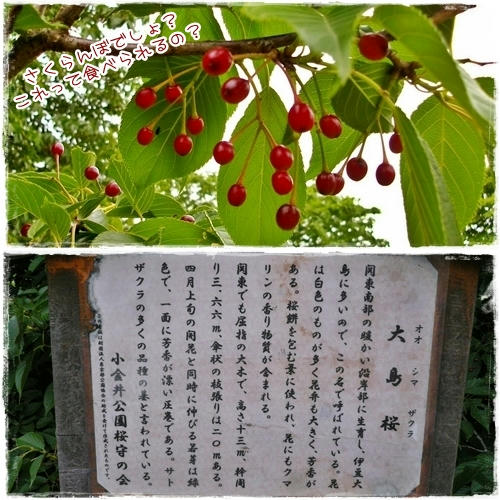 さくらんぼでしょ?
これって食べられるの?
大島桜
オオ シマ ザクラ
関東南部の暖かい沿岸部に生育し伊豆大
島に多いので、この名で呼ばれている。花
は白色のものが多く花弁も大きく、芳香が
ある。桜餅を包む葉に使われ、花にもクマ
リンの香り物質が含まれる。
関東でも屈指の大木で、高さ十三m、幹周
り三、六六m、傘状の枝張りは二〇mある。
四月上旬の開花と同時に伸びる若芽は緑
色で、一面に芳香が漂い圧巻である。サト
ザクラの多くの品種の基と言われている。
小金井公園桜守の会